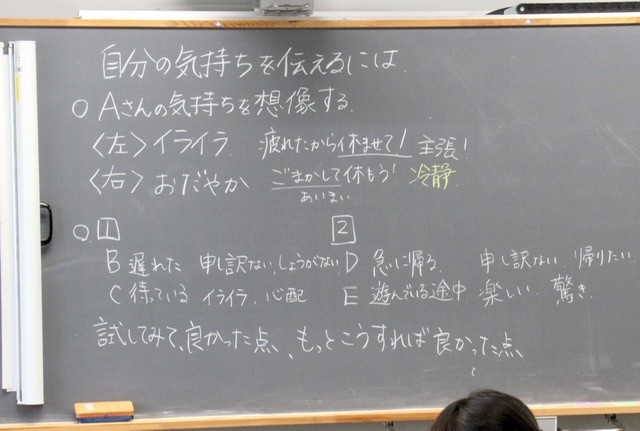 自分の気持ちを伝えるには
○Aさんの気持ちを想像する
〈左〉イライラ 疲れたから休ませて! 主張!
〈右〉おだやか ごまかして休もう! 冷静
あいまい
○ 1 2
B 遅れた 申し訳ない、しょうがない D 急に帰る 申し訳ない 帰りたい
C 待っている イライラ、心配 E 遊んでいる途中 楽しい 驚き
試してみて、良かった点、もっとこうすれば良かった点